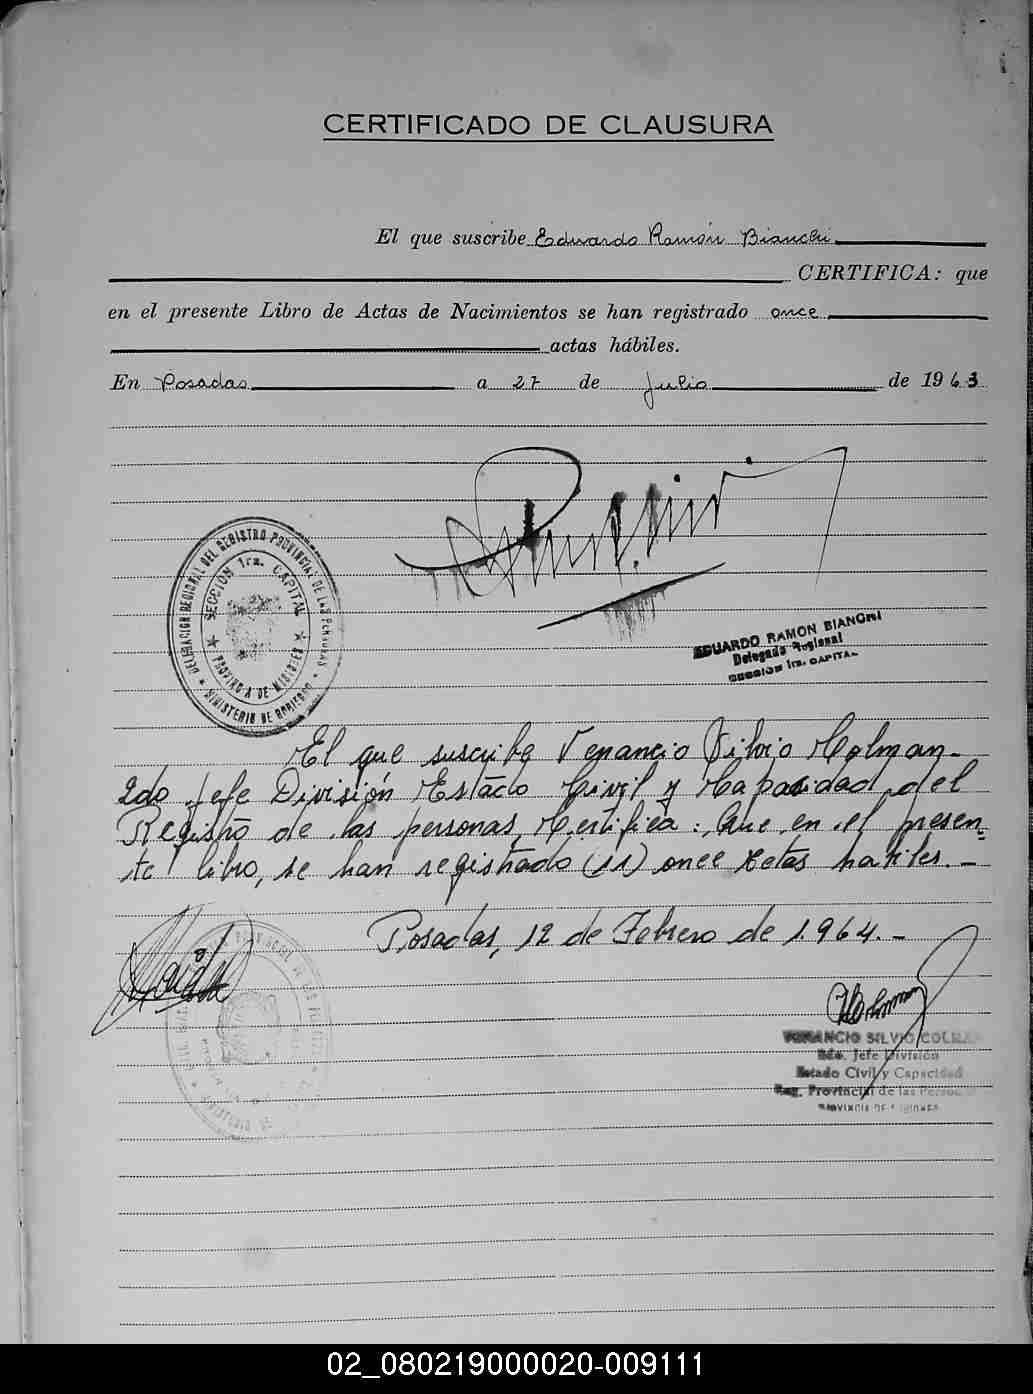 CERTIFICADO DE CLAUSURA
El que suscribe Eduardo Ramón Bianchi
CERTIFICA: que
en el presente Libro de Actas de Nacimientos se han registrado once
actas hábiles.
En Posadas a 27 de Julio de 1963
DELEGACION REGIONAL DEL REGISTRO PROVINCIAL DE LAS PERSONAS
SECCION 1ra. CAPITAL
PROVINCIA DE MISIONES
MINISTERIO DE GOBIERNO
EDUARDO RAMON BIANCHI
Delegado Regional
SECCION 1ra. CAPITAL
El que suscribe Venancio Silvio Colman-
2do Jefe División Estado Civil y Capacidad del
Registro de las personas, Certifica: Que en el presen-
te libro, se han registrado (11) once actas habiles.-
Posadas, 12 de Febrero de 1.964.-
VENANCIO SILVIO COLMAN
2do. Jefe División
Estado Civil y Capacidad
Reg. Provincial de las Personas
PROVINCIA DE MISIONES
02_080219000020-009111